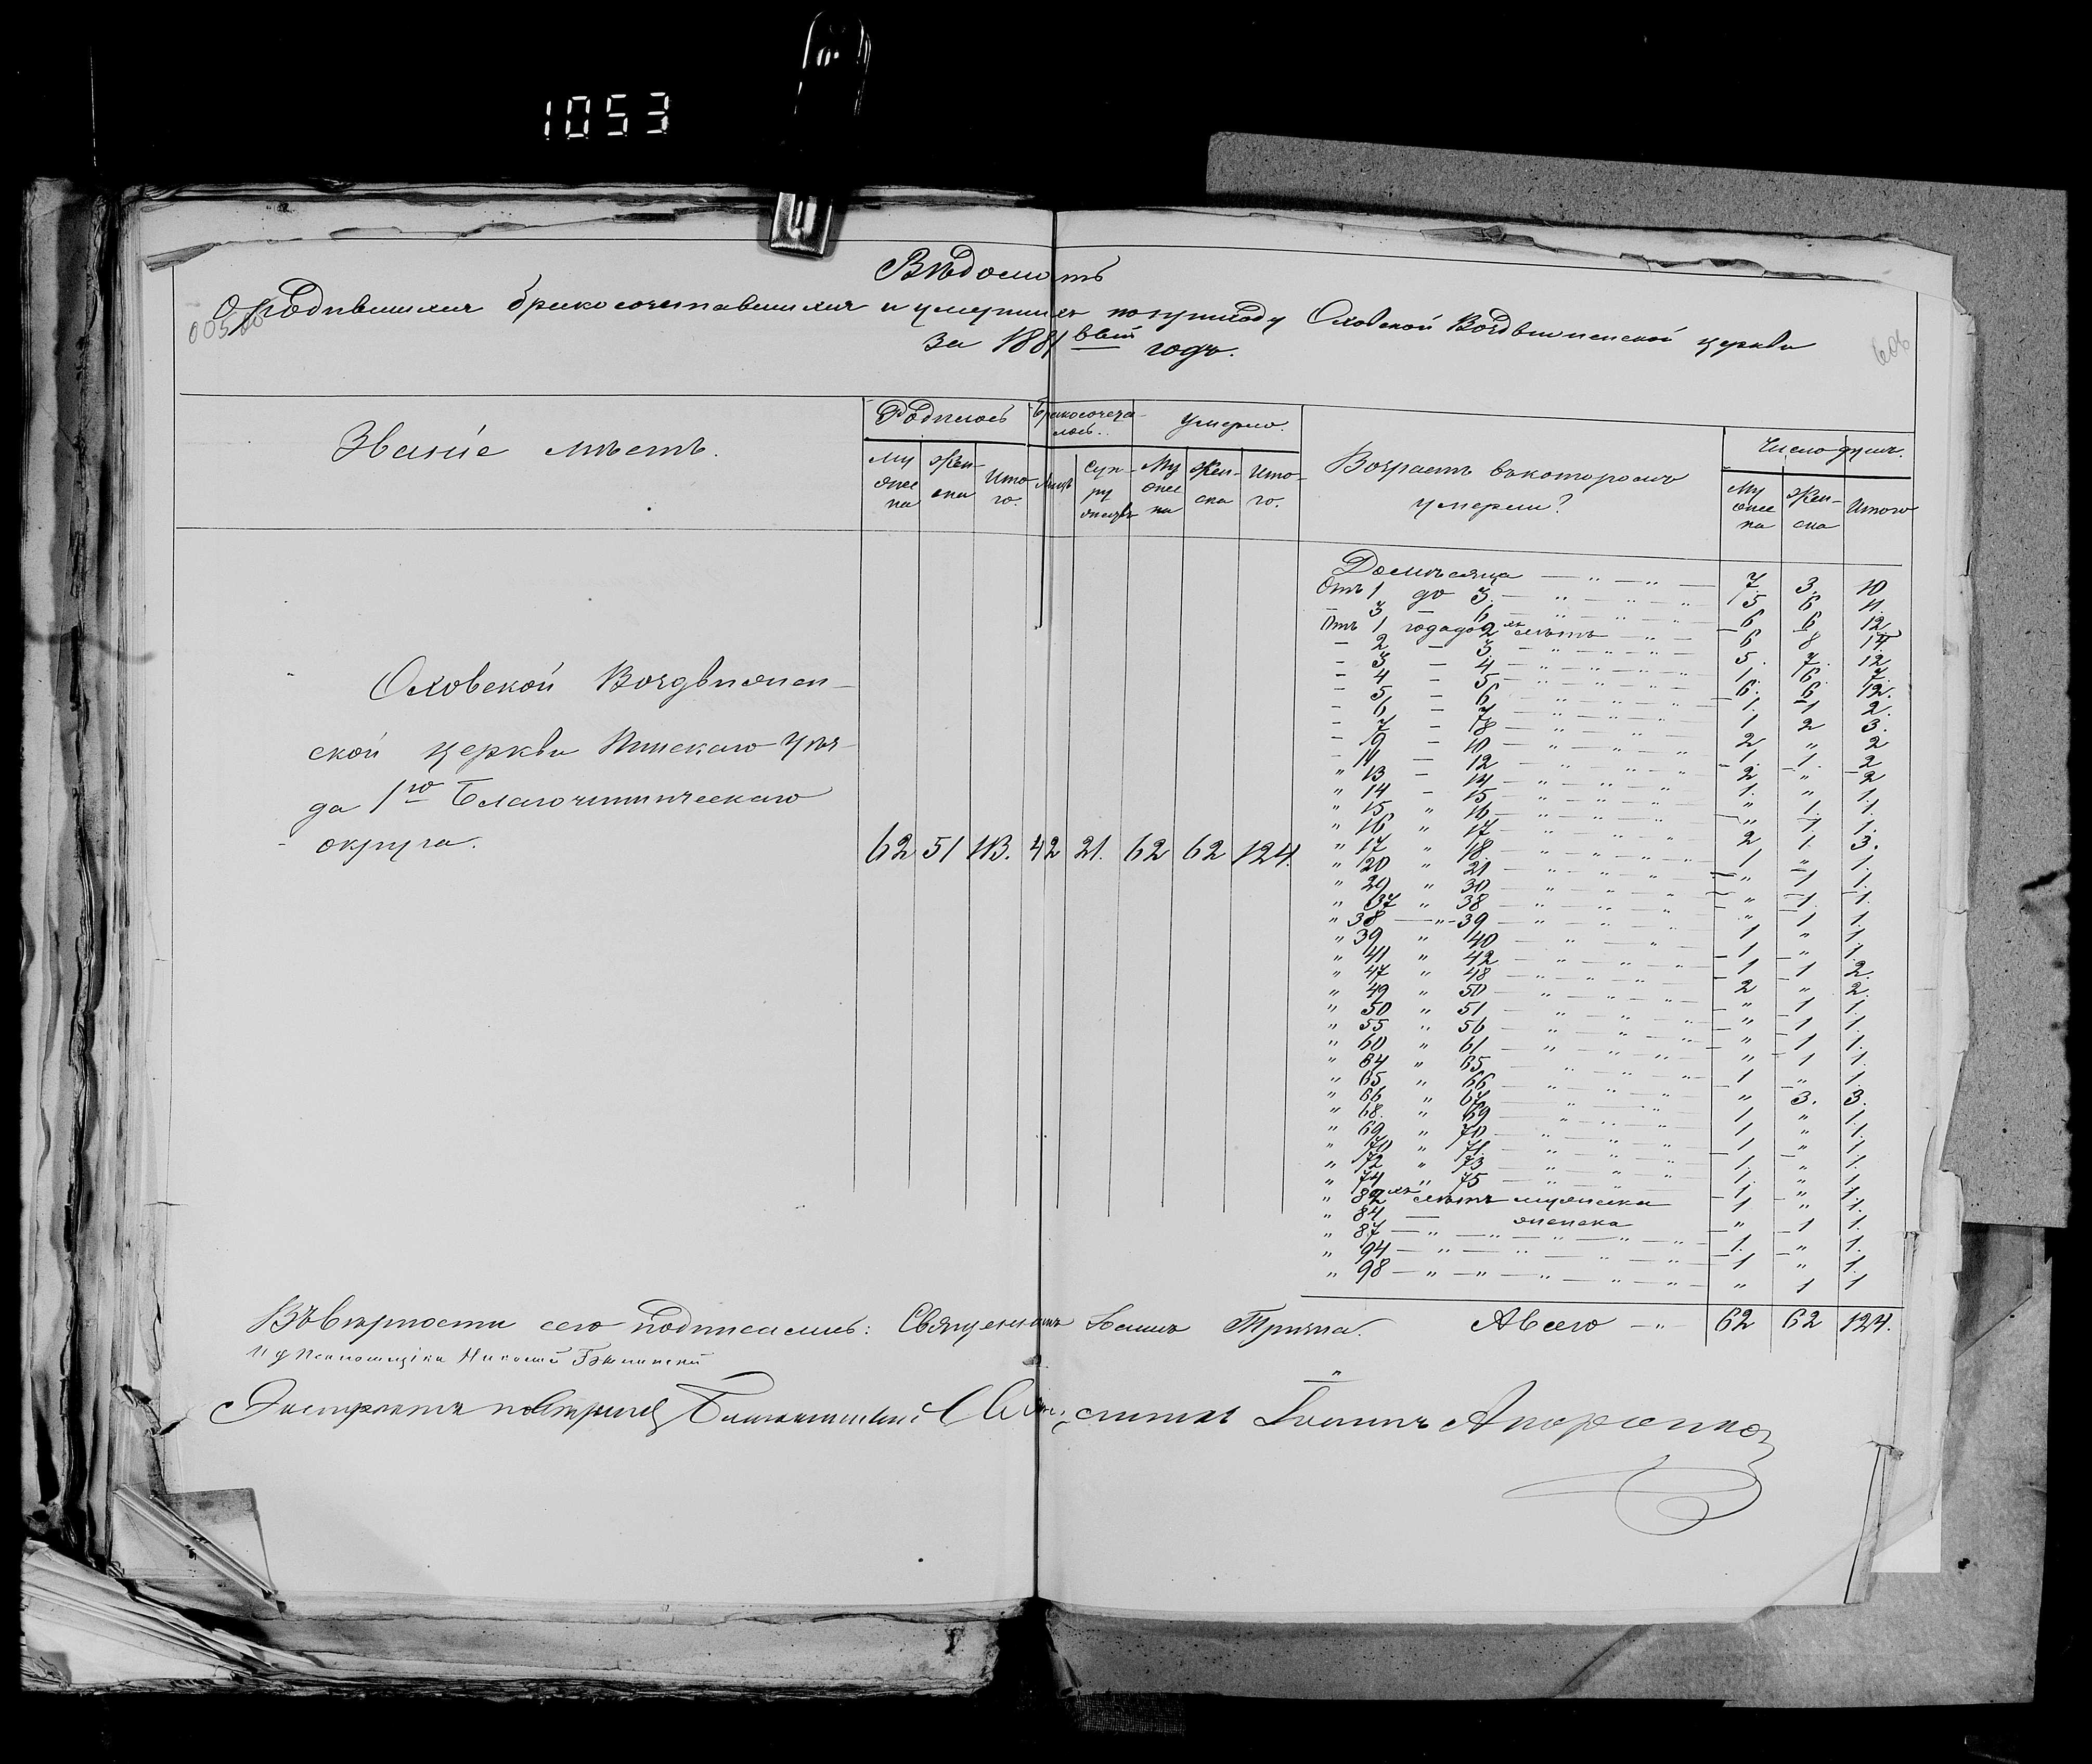 1053
Вѣдомость
О родившихся бракосочетавшихся и умершихъ по приходу Оховской Воздвиженской церкви
за 1881 вый годъ.
606
Званіе мѣстъ.
Родилось
Бракосочета-
лось.
Умерло.
Возрастъ въ которомъ
умерли?
Число душъ.
Му
жес
ка
Жен-
ска
Ито
го.
Лицъ
Суп-
ру
жествъ
Му
жес
ка
Жен-
ска
Ито-
го.
Му
жес
ка
Жен-
ска
Итого
Оховской Воздвижен-
ской церкви Пинскаго Уѣз-
да 1го Благочинническаго
округа.
62 51 113. 42 21. 62 62 124.
До мѣсяца — „ — „ — 7. 3. 10
Отъ 1 до 3. — „ — „ — „ 5 6 11.
— 3 — 6 — „ — „ — 6 6 12.
Отъ 1 года до 2хъ лѣтъ — „ — 6 8 14.
— 2 — 3. — „ — „ — 5. 7. 12
— 3 — 4 — „ — „ — 1. 6. 7.
— 4 — 5 — „ — „ — 6. 6 12.
— 5 — 6 — „ — „ — 1. 1 2.
— 6 — 7 — „ — „ — 1 2 3.
— 7 — 8 — „ — „ — 2 „ 2
— 9 — 10 — „ — „ — 1. 1. 2
— 11 — 12 — „ — „ — 2 „ 2
„ 13 — 14 — „ — „ — 1. „ 1.
„ 14 — 15 — „ — „ — „ 1. 1.
„ 15 „ 16 — „ — „ — „ 1 1.
„ 16 „ 17 — „ — „ — 2 1. 3.
„ 17 „ 18. — „ — „ — 1 „ 1.
„ 20 „ 21 — „ — „ — „ 1 1.
„ 29 „ 30 — „ — „ — „ 1. 1.
„ 37 „ 38 — „ — „ — „ 1 1.
„ 38 — „ — 39 — „ — „ — 1 „ 1.
„ 39 „ 40 — „ — „ — 1 „ 1.
„ 41 „ 42 — „ — „ — 1 1 2.
„ 47 „ 48 — „ — „ — 2 „ 2.
„ 49 „ 50 — „ — „ — „ 1 1.
„ 50 „ 51 — „ — „ — „ 1 1.
„ 55 „ 56 — „ — „ — „ 1 1.
„ 60 „ 61 — „ — „ — „ 1 1.
„ 64 „ 65 — „ — „ — 1 „ 1.
„ 65 „ 66 — „ — „ — „ 3. 3.
„ 66 „ 67 — „ — „ — 1 „ 1.
„ 68. „ 69 — „ — „ — 1 „ 1.
„ 69 „ 70 — „ — „ — 1. „ 1.
„ 70 „ 71. — „ — „ — 1. „ 1.
„ 72 „ 73 — „ — „ —
„ 74 „ 75 — „ — „ —
„ 82хъ лѣтъ мужеска 1 „ 1.
„ 84 — женска „ 1 1.
„ 87 — „ — „ — „ — 1. „ 1.
„ 94 — „ — „ — „ — 1 „ 1.
„ 98 — „ — „ — „ — „ 1 1
А всего — „ 62 62 124.
Въ вѣрности сего подписались: Священникъ Іоаннъ Тричла.
И д Псаломщика Николай
Экстрактъ повѣрилъ Благочинный Священникъ Іоаннъ